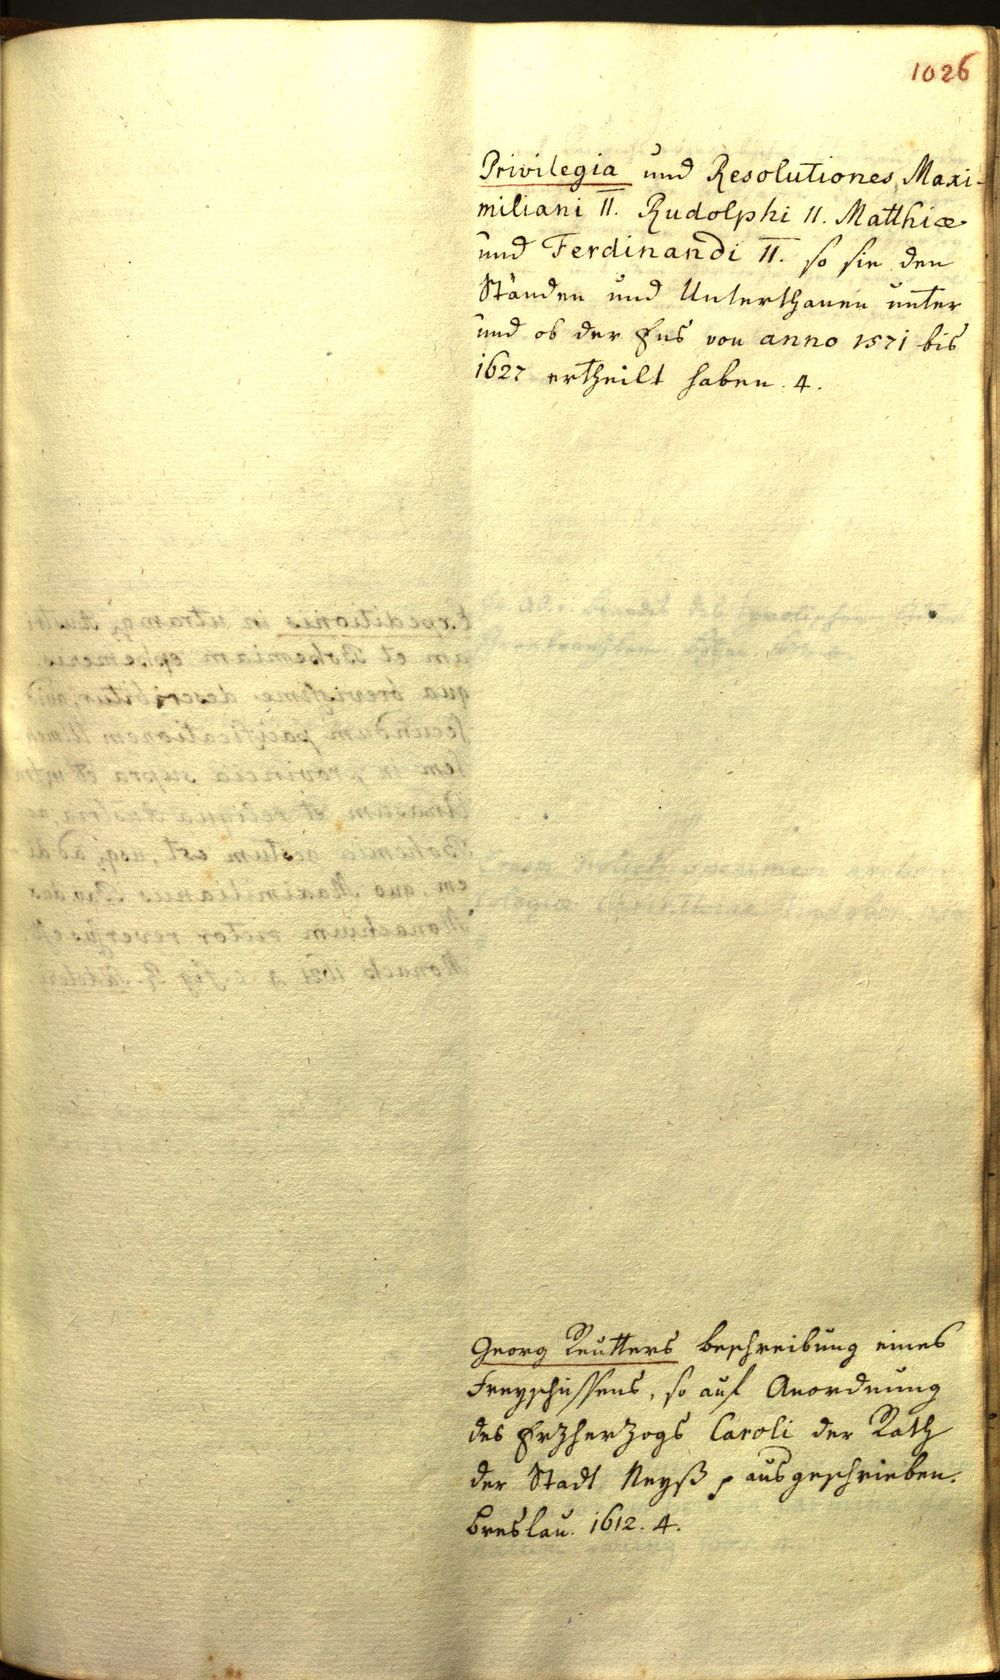 1026
Privilegia und Resolutiones Maxi-
miliani II. Rudolphi II. Matthiæ
und Ferdinandi II. so sie den
Ständen und Unterthanen unter
und ob der Ens von anno 1571 bis
1627 ertheilt haben. 4.
Georg Reutters Beschreibung eines
Freyschüssens, so auf Anordnung
des Erzherzogs Caroli der Rath
der Stadt Neyß ausgeschrieben.
Breslau. 1612. 4.